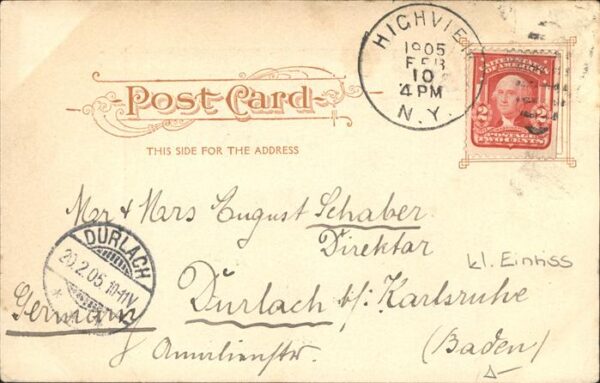 HIGHVIEW
1905
FEB
10
4 PM
N.Y.
UNITED STATES
OF AMERICA
2 2
POSTAGE
TWO CENTS
Post-Card
THIS SIDE FOR THE ADDRESS
Mr & Mrs August Schaber
Direktor
kl. Einriss
DURLACH
20.2.05.10-11V
Durlach b/. Karlsruhe
Germany
Amalienstr.
(Baden)